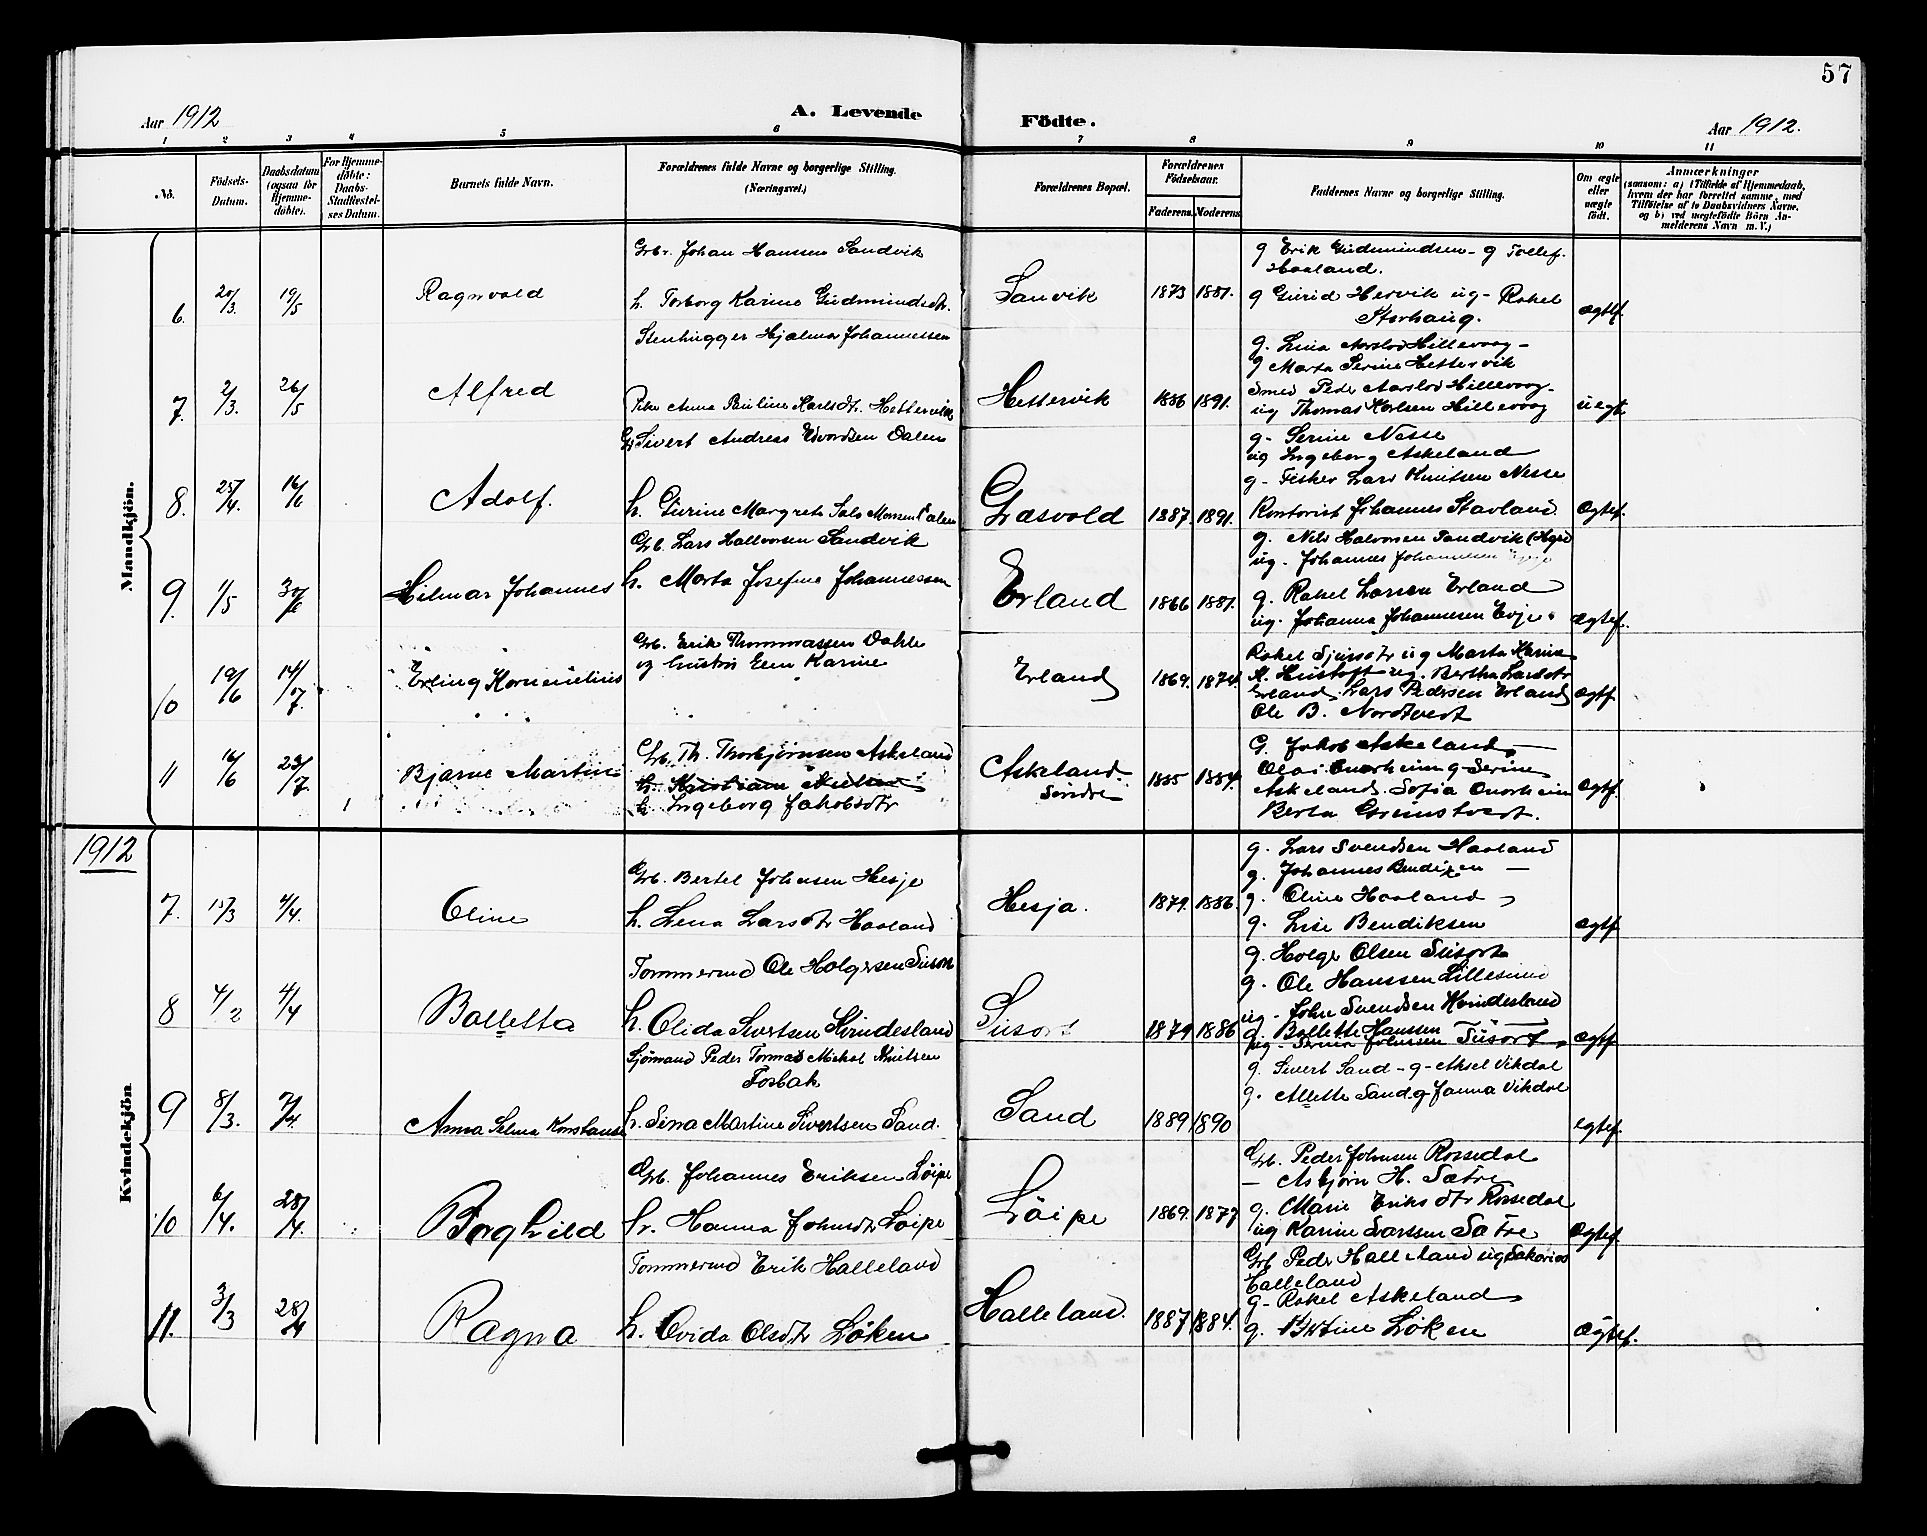 57
Aar 1912
A. Levende
Födte.
Aar 1912.
1 2 3 4 5 6 7 8 9 10 11
No.
Födsels-Datum.
Daabsdatum (ogsaa for Hjemme-döbte).
For Hjemme-döbte: Daabs-Stadfæstel-ses Datum.
Barnets fulde Navn.
Forældrenes fulde Navne og borgerlige Stilling. (Næringsvei.)
Forældrenes Bopæl.
Forældrenes Födselsaar.
Faderens. Moderens.
Faddernes Navne og borgerlige Stilling.
Om ægte eller uægte födt.
Anmærkninger
(saasom: a) i Tilfælde af Hjemmedaab, hvem der har forrettet samme, med Tilföielse af to Daabsvidners Navne, og b) ved uægtefödte Börn An-melderens Navn m. V.)
Mandkjön.
6. 20/3. 19/5 Ragnvald
Grbr. Johan Hanssen Sandvik
h. Torborg Karine Gudmindsdtr.
Sanvik 1873 1881.
g Erik Gudmindsen - g Tollef.
Haaland.
g Gurid Hervik ug - Rakel
Storhaug.
ægtf.
7. 2/3. 26/5 Alfred
Stenhugger Hjalmar Johannessen
Pike Anna Pauline Karlsdtr. Hettervik
Hettervik 1886 1891.
g. Lina Aarslod Hillevaag -
g Marta Serine Hettervik
Smed Peder Aarslod Hillevaag -
ug Thomas Karlsen Hillevaag
uegt.
8. 25/4. 16/6 Adolf.
G. Sivert Andreas Edvardsen Dalen
h. Gurine Margrete Monsen Dalen
Græsvold 1887. 1891.
g. Serine Nesse
ug Ingeborg Askeland
g - Fisker Lars Knutsen Nesse
Kontorist Johannes Stavland
Ægtef.
9. 1/5 30/6 Hilmar Johannes
Grb. Lars Hallvorsen Sandvik
h. Marta Josefine Johannessen
Erland 1866 1881.
g. Nils Halvorsen Sandvik
ug. Johannes Johannesen
g. Rakel Larsen Erland
ug. Johanna Johannesen Evje.
Ægtef.
10 19/6 14/7. Erling Kornelius
Grb. Erik Thommassen Dahle
og hustru Elen Karine
Erland 1869. 1874.
Rakel Sjursdtr ug Marta Karine
K. Hustoft ug. Bertha Larsdtr
Erland. Lars Pedersen Erland
Ole B. Nordtvedt
Ægtf.
11 16/6 23/7. Bjarne Martin
Grb. Th. Thorbjørnsen Askeland
h. Ingeborg Jakobsdtr
Askeland. Søndre 1885 1884.
G. Jakob Askeland
Askeland. Sofia
Berta Grimstvedt.
Ægtf.
1912
Kvindekjön
7. 15/3 4/4. Oline
Grb. Bertel Johnsen Hesje
h. Lena Larsdtr Haaland
Hesja. 1879. 1886.
g. Lars Svendsen Haaland
g. Johannes Bendixen
g. Oline Haaland
g. Lise Bendiksen
ægtf
8 4/2 4/4 Bolletta
Tømmermd Ole Holgersen Susort
h. Olida Sivertsen Kvindesland
Susort 1879 1886
g. Holge Olsen Susort
g. Ole Hanssen Lillesund
ug - Johne Svendsen Kvindesland
g. Bollette Hanssen
pig - Serina Johnssen Susort
ægtf
9 8/3. 7/4. Anna Selma Konstanse
Sjømand Peder Tormod Mikal Knutsen
Fosbak
h. Sina Martine Sivertsen Sand.
Sand 1889 1890
g. Sivert Sand - g - Aksel Vikdal
g. Allette Sand. g Janna Vikdal
egtef.
10 6/4. 28/4. Borghild
Grb. Johannes Eriksen Løipe
h. Hanna Johnsdtr Løipe
Løipe 1869. 1877
Grb. Peder Johnsen Rossedal
— Asbjørn H. Sætre
g. Marie Eriksdtr Rossedal
ug Karine Larssen Sætre
Ægtef.
11. 3/3 28/4 Ragna
Tømmermd Erik Halleland
h. Ovida Olsdtr Løken
Halleland. 1887 1884.
Grb Peder Halleland ug Sakarias
Halleland
g - Rakel Askeland
g. Løken
Ægtef.